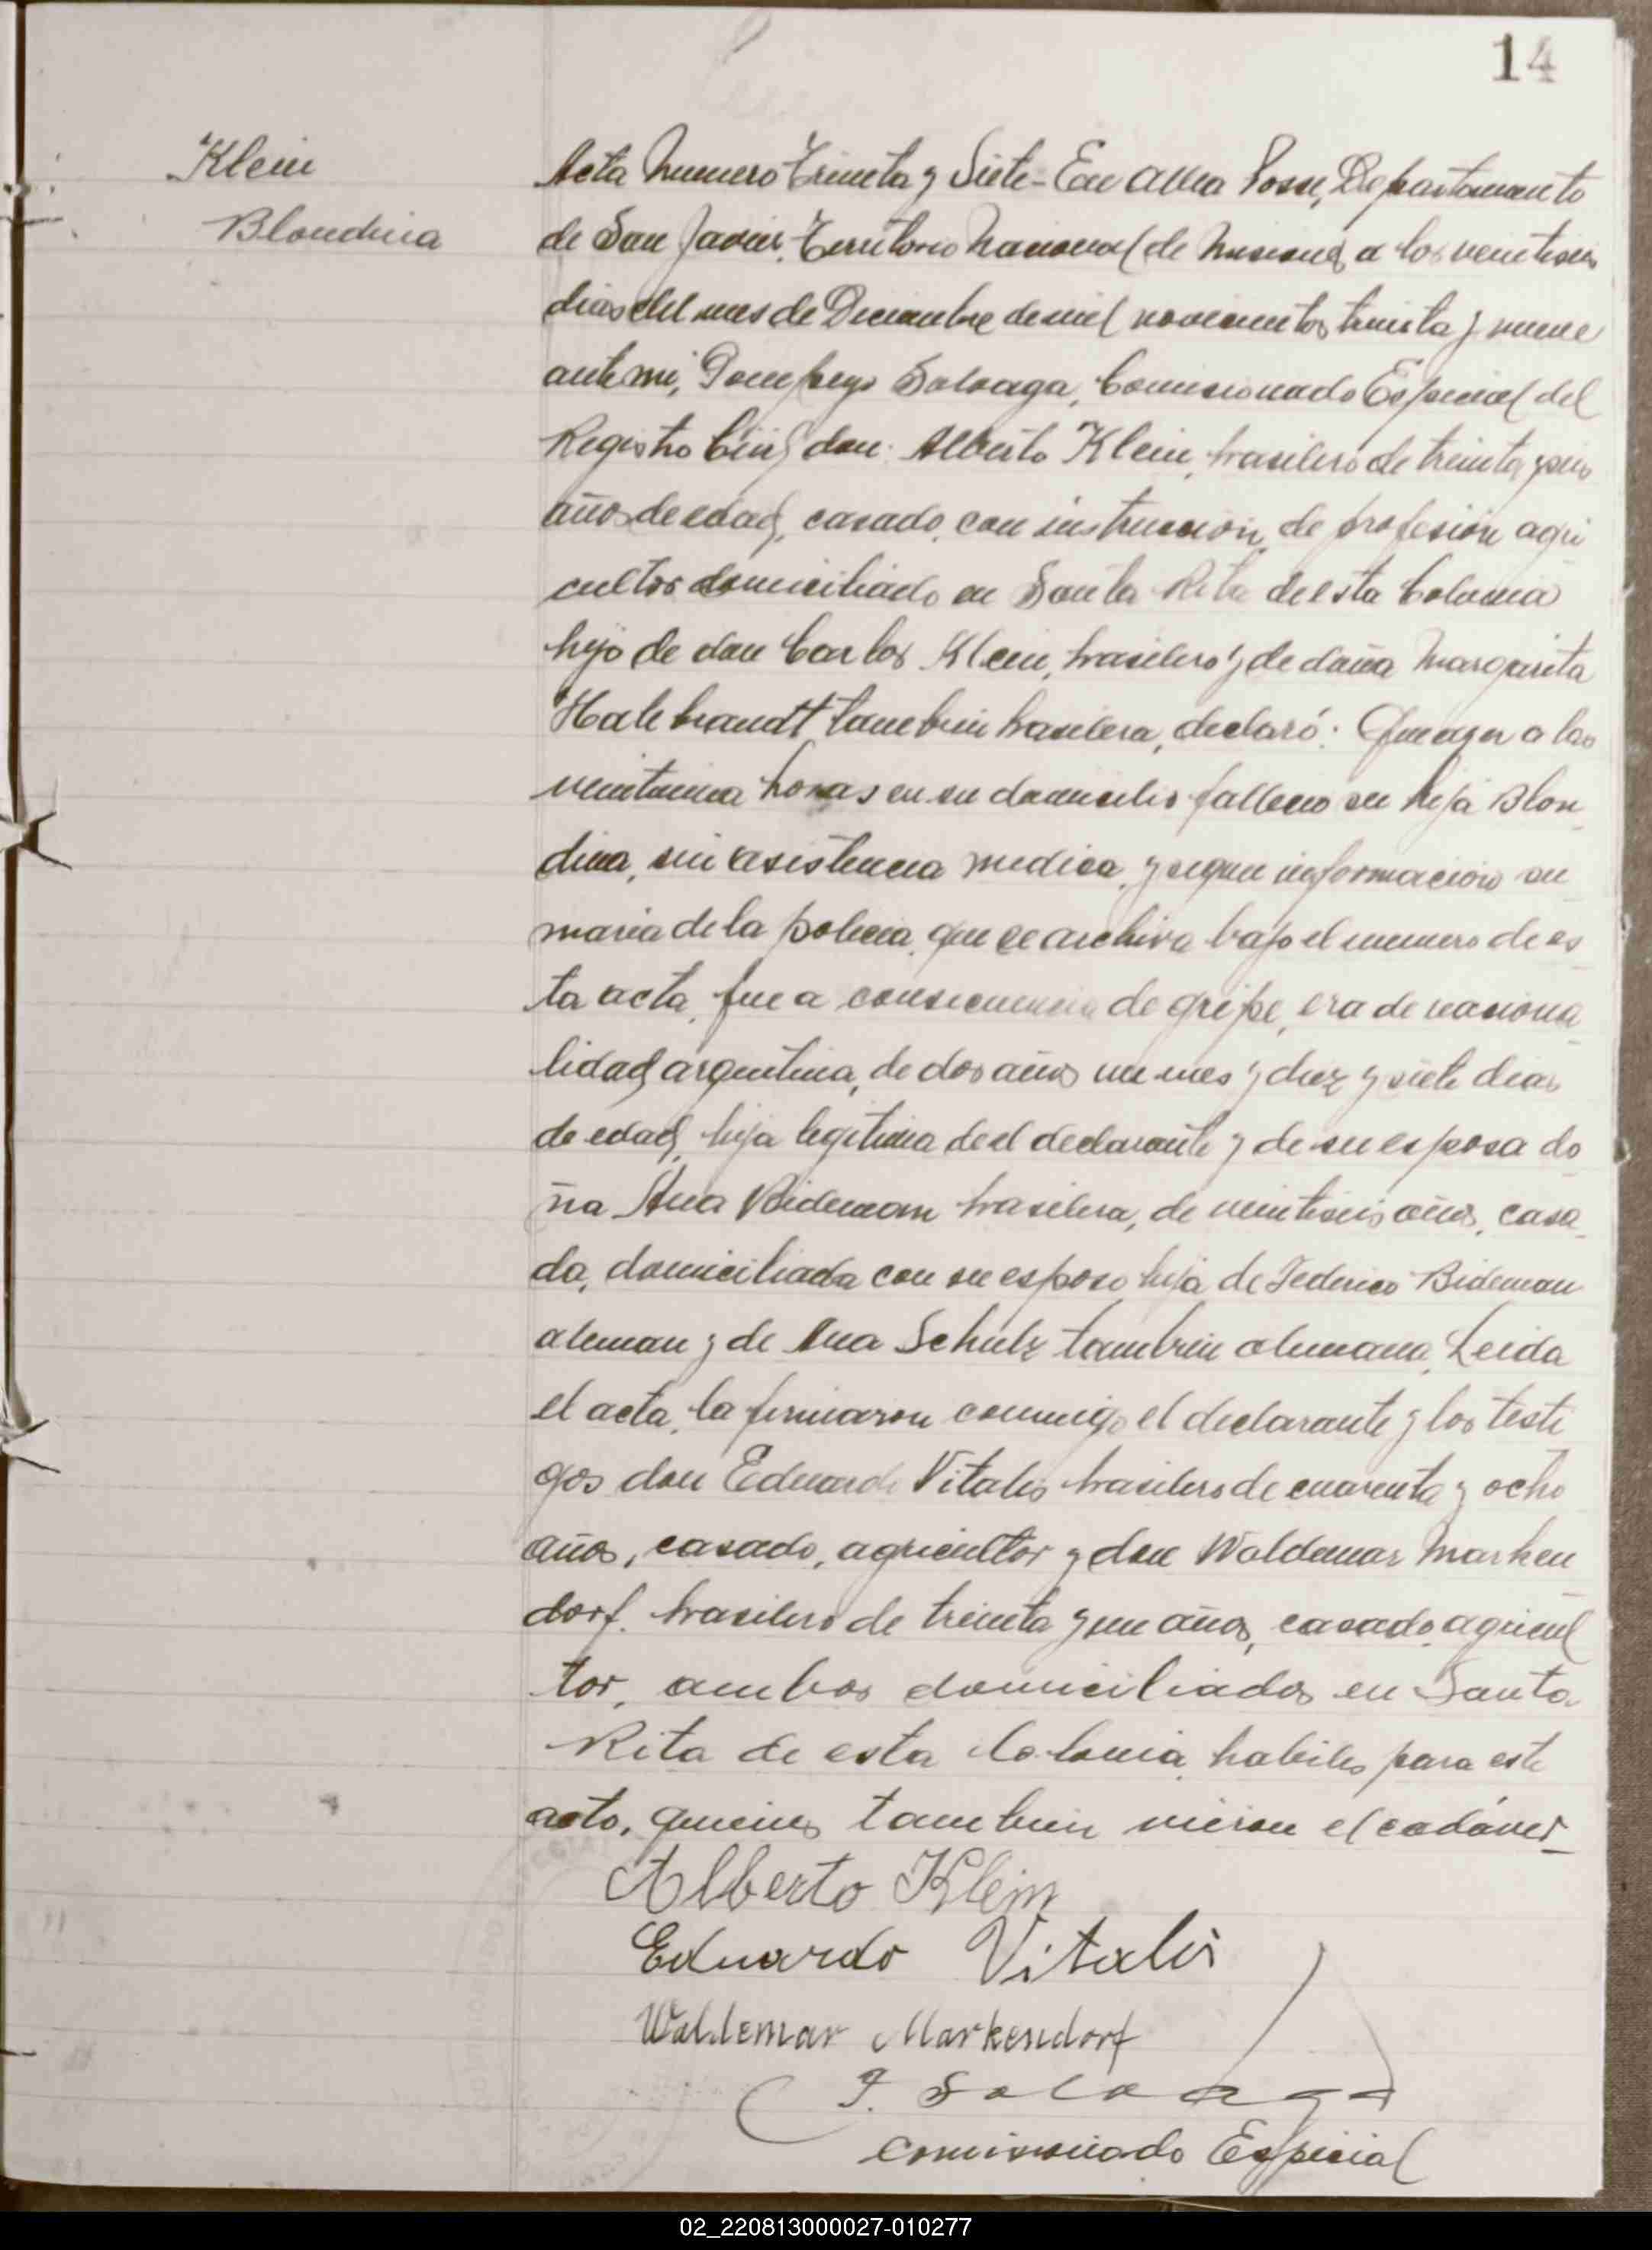 14
Klein
Blondina
Acta Numero Treinta y Siete - En Alba Posse, Departamento
de San Javier, Territorio Nacional de Misiones, a los veintiseis
dias del mes de Diciembre de mil novecientos treinta y nueve
ante mi, Pompeyo Soloaga, Comisionado Especial del
Registro Civil, don: Alberto Klein, brasilero de treinta y seis
años de edad, casado, con instruccion, de profesión agri
cultor domiciliado en Santa Rita de esta Colonia
hijo de don Carlos Klein, brasilero y de doña Margarita
Halebrandt tambien brasilera, declaró: Que ayer a las
veintiuna horas en su domicilio fallecio su hija Blon
dina, sin asistencia medica, y segun informacion su
maria de la policia, que se archiva bajo el numero de es
ta acta, fue a consecuencia de gripe, era de naciona
lidad argentina, de dos años un mes y diez y siete dias
de edad, hija legitima de el declarante y de su esposa do
ña Ana Bideman brasilera, de veintiseis años, casa
da, domiciliada con su esposo, hija de Federico Bideman
aleman y de Ana Schulz tambien alemana, Leida
el acta, la firmaron conmigo el declarante y los testi
gos don Eduardo Vitalis brasilero de cuarenta y ocho
años, casado, agricultor y don Waldemar Marken
dorf. brasilero de treinta y un años, casado, agricul
tor, ambos domiciliados en Santa
Rita de esta Colonia, habiles para este
acto, quienes tambien vieron el cadáver
Alberto Klein
Eduardo Vitalis
Waldemar Markendorf
P. Soloaga
Comisionado Especial
02_220813000027-010277